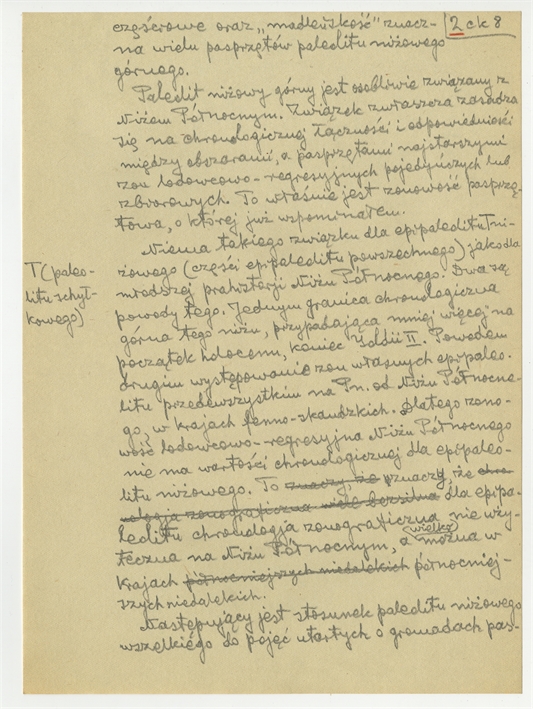 częściowe oraz „madleńskość" znacz-
2 ck 8
na wielu pasprzętów paleolitu niżowego
górnego.
Paleolit niżowy górny jest osobliwie związany z
Niżem Północnym. Związek zwłaszcza zasadza
się na chronologicznej łączności i odpowiedniości
między obszarami, a pasprzętami najstarszymi
zon lodowcowo-regresyjnych pojedyńczych lub
zbiorowych. To właśnie jest zonowość pasprzę-
towa, o której już wspominałem.
Niema takiego związku dla epipaleolitu T ni-
żowego (części epipaleolitu powszechnego) jako dla
T (paleo-
litu schył-
kowego)
młodszej prahistorji Niżu Północnego. Dwa są
powody tego. Jednym granica chronologiczna
górna tego niżu, przypadająca mniej więcej na
początek holocenu, koniec Yoldii II. Powodem
drugim występowanie zon własnych epipaleo-
litu przedewszystkim na Pn. od Niżu Północne-
go, w krajach fenno-skandzkich. Dlatego zono-
wość lodowcowo-regresyjna Niżu Północnego
nie ma wartości chronologicznej dla epipaleo-
litu niżowego. To znaczy, że znaczy, że chro-
nologja zonograficzna dla epipa-
leolitu chronologja zonograficzna nie uży-
teczna na Niżu Północnym, a można w
wielka
krajach północniejszych niedalekich północniej-
szych niedalekich.
Następujący jest stosunek paleolitu niżowego
wszelkiego do pojęć utartych o gromadach pas-